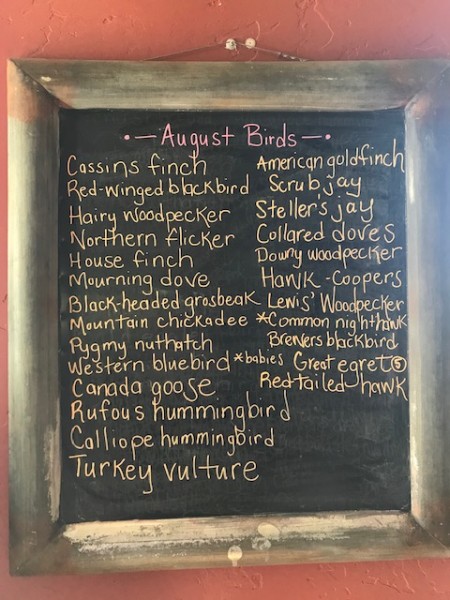 • — August Birds — •
Cassins finch
Red-winged blackbird
Hairy woodpecker
Northern flicker
House finch
Mourning dove
Black-headed grosbeak
Mountain chickadee
Pygmy nuthatch
Western bluebird *babies
Canada goose
Rufous hummingbird
Calliope hummingbird
Turkey vulture
American goldfinch
Scrub jay
Steller's jay
Collared doves
Downy woodpecker
Hawk-Coppers
Lewis' Woodpecker
*Common nighthawk
Brewers blackbird
Great egret ⑤
Redtailed hawk